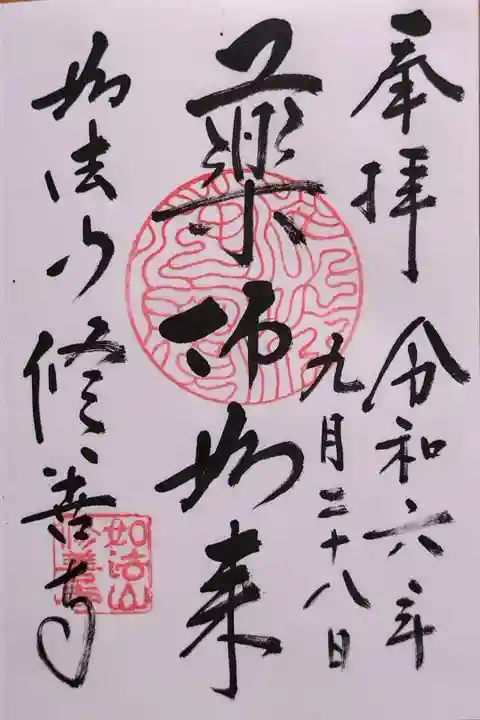 奉拝 令和六年
九月二十八日
薬師如来
如法山 修善寺
如法山
修善寺